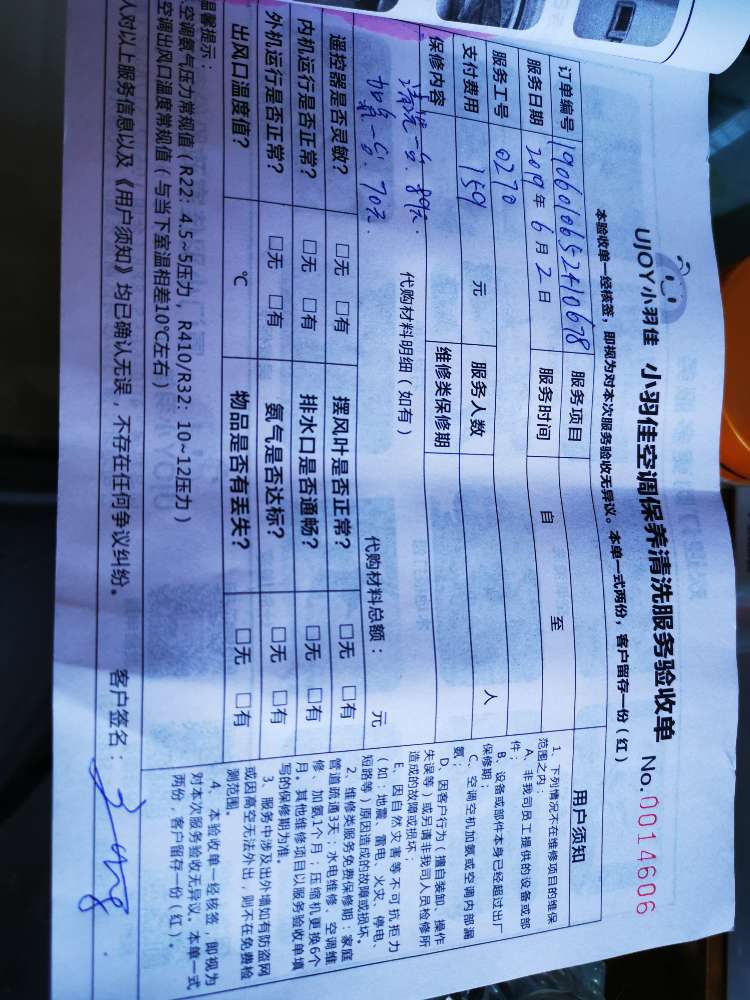 UJOY小羽佳 小羽佳空调保养清洗服务验收单 No.0014606
本验收单一经核签，即视为对本次服务验收无异议。本单一式两份，客户留存一份（红）
订单编号 1906010652410678 服务项目
服务日期 2019年6月2日 服务时间 自 至
服务工号 0270
支付费用 159 元 服务人数 人
保修内容 维修类保修期
清洗一台 89元.
加氨一台. 70元.
代购材料明细（如有） 代购材料总额： 元
遥控器是否灵敏？ □无 □有 摆风叶是否正常？ □无 □有
内机运行是否正常？ □无 □有 排水口是否通畅？ □无 □有
外机运行是否正常？ □无 □有 氨气是否达标？ □无 □有
出风口温度值？ ℃ 物品是否有丢失？ □无 □有
温馨提示：
空调氨气压力常规值（R22：4.5~5压力，R410/R32：10~12压力）
空调出风口温度常规值（与当下室温相差10℃左右）
人对以上服务信息以及《用户须知》均已确认无误，不存在任何争议纠纷。 客户签名：
用户须知
1、下列情况不在维修项目的维保
范围之内：
A、非我司员工提供的设备或部
件；
B、设备或部件本身已经超过出厂
保修期；
C、空调空机加氨或空调内部漏
氨；
D、因客户行为（擅自装卸、操作
失误等）或另请非我司人员检修所
造成的故障或损坏；
E、因自然灾害等不可抗拒力
（如：地震、雷电、火灾、停电、
短路等）原因造成的故障或损坏。
2、维修类服务免费保修期：家庭
管道疏通3天；水电维修、空调维
修、加氨1个月；压缩机更换6个
月。其他维修项目以服务验收单填
写的保修期为准。
3、服务中涉及出外墙如有防盗网
或因高空无法外出，则不在免费检
测范围。
4、本验收单一经核签，即视为
对本次服务验收无异议。本单一式
两份，客户留存一份（红）。